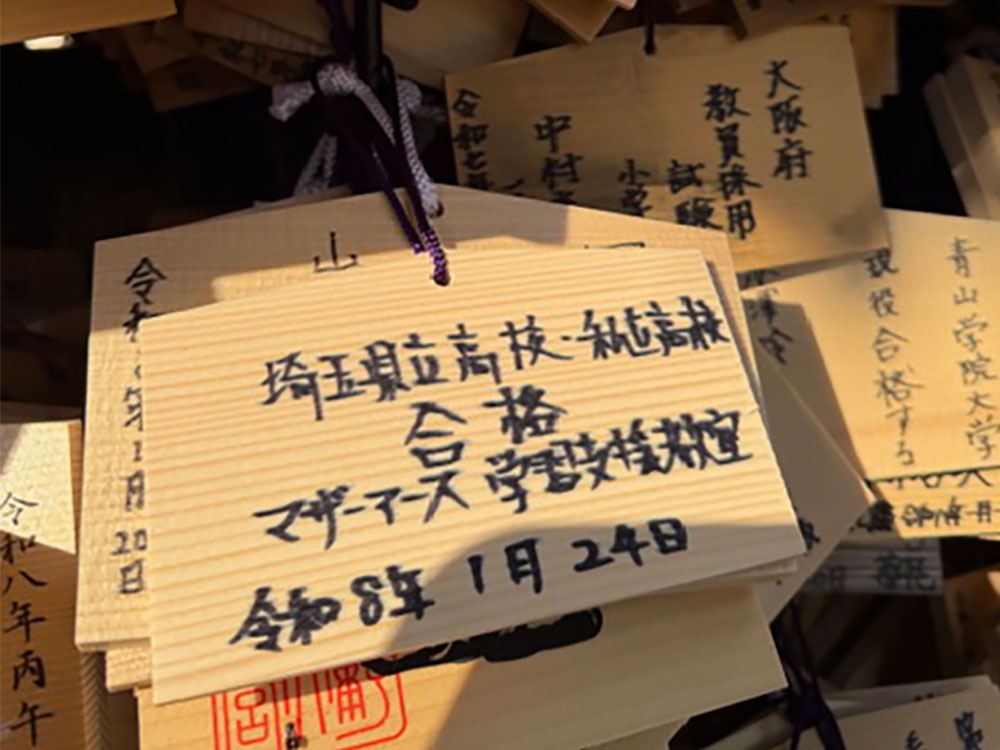 埼玉県立高校・私立高校
合格
マザーアース 学習支援教室
令和8年 1月 24日
大阪府
教員採用
試験
小学
中村
令和七
青山学院大学
現役合格する
山
令和
年1月
20
日
令和八年丙午